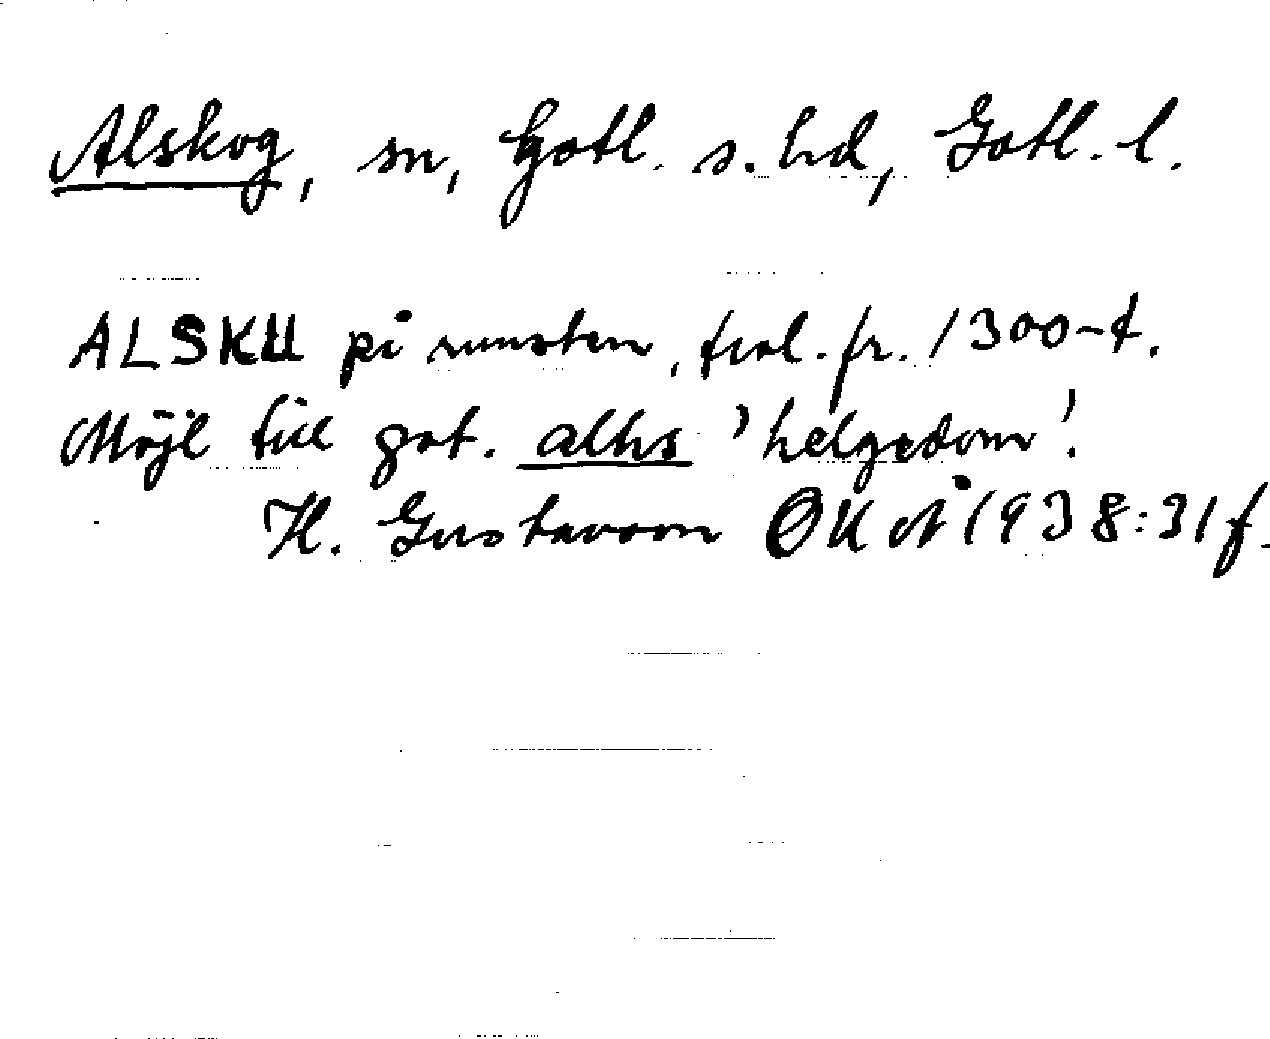 Alskog, sn, Gotl. s. hd, Gotl. l.
ALSKU på runsten, trol. fr. 1300-t.
Möjl till got. alhs 'helgedom'.
H. Gustavson OUÅ 1938:31f.